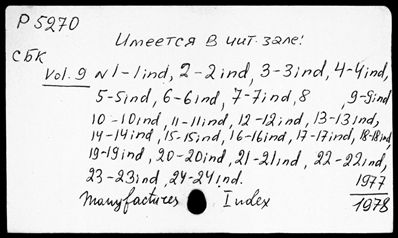 P 5270
Имеется в чит. зале:
СБК
Vol. 9 N 1-1 ind, 2-2 ind, 3-3 ind, 4-4 ind,
5-5 ind, 6-6 ind, 7-7 ind, 8 , 9-9 ind
10-10 ind, 11-11 ind, 12-12 ind, 13-13 ind,
14-14 ind, 15-15 ind, 16-16 ind, 17-17 ind, 18-18 ind,
19-19 ind, 20-20 ind, 21-21 ind, 22-22 ind,
23-23 ind, 24-24 ind. 1977
Manufactures Index 1978